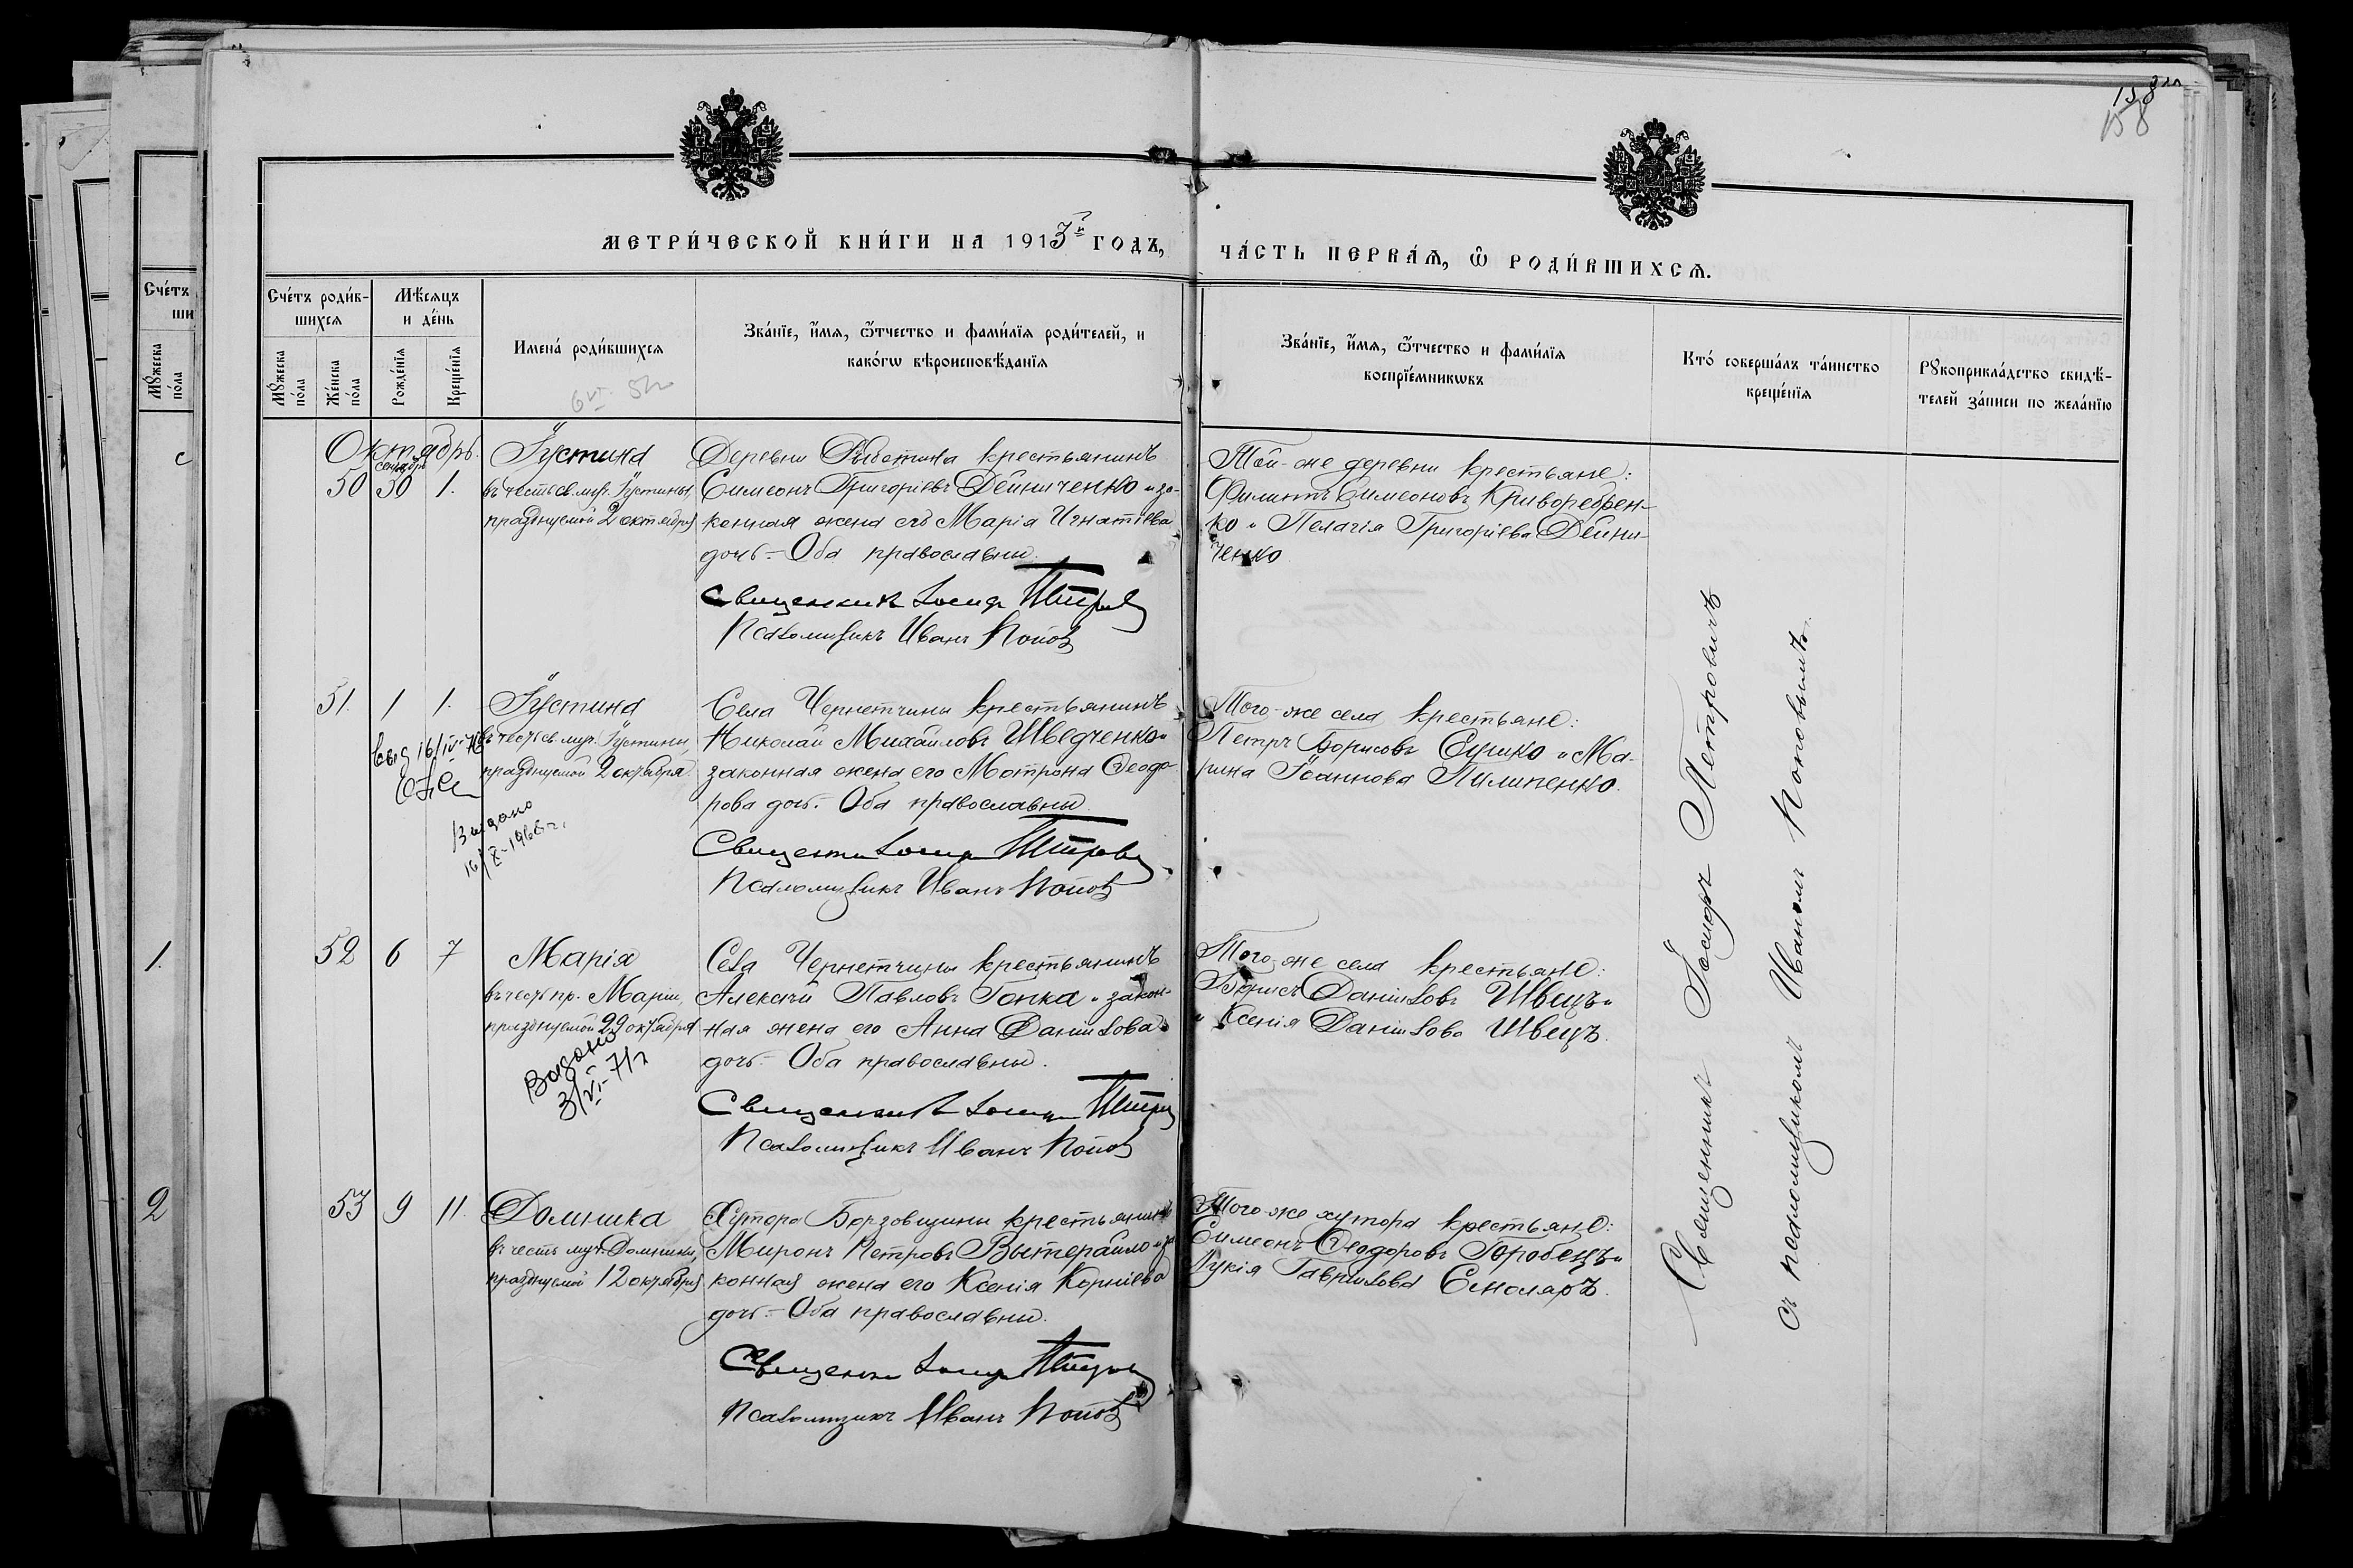 158
158
МЕТРИ́ЧЕСКОЙ КНИ́ГИ НА 1913й ГОДЪ,
ЧА́СТЬ ПЕРВА́Ѧ, Ѡ РОДИ́ВШИХСѦ.
Сче́тъ роди́в-
шихсѧ
Мѣ́сѧцъ
и де́нь
Мꙋжеска по́ла
Же́нска по́ла
Рожде́нїѧ
Креще́нїѧ
Имена́ роди́вшихсѧ
Зва́нїе, и́мѧ, ѻ́тчество и фами́лїѧ роди́телей, и
како́гѡ вѣроисповѣ́данїѧ
Зва́нїе, и́мѧ, ѻ́тчество и фами́лїѧ
воспрїе́мникѡвъ
Кто́ соверша́лъ та́инство
креще́нїѧ
Рꙋкоприкла́дство свидѣ́-
телей за́писи по жела́нїю
Сче́тъ
ши
Мꙋжеска по́ла
1.
2
Октябрь.
сентябрь
50 30 1.
Іустина
въ честь св. муч. Іустины,
празднуемой 2 октября
Деревни крестьянинъ
Симеонъ Григоріевъ Дейниченко и за-
конная жена его Марія Игнатіева
дочь. Оба православны.
Священникъ Іосифъ Петровъ
Псаломщикъ Иванъ Поповъ
Той-же деревни крестьяне:
Филиппъ Симеоновъ Криворебрен-
ко и Пелагія Григоріева Дейни-
ченко
51. 1 1.
Іустина
въ честь св. муч. Іустины,
празднуемой 2 октября.
Выдано
16/X-1966г.
Села Чернетчины крестьянинъ
Николай Михайловъ Шведченко и
законная жена его Мотрона Ѳеодо-
рова дочь. Оба православны.
Священникъ Іосифъ Петровъ
Псаломщикъ Иванъ Поповъ
Того-же села крестьяне:
Петръ Борисовъ Сушко и Ма-
рина Іоаннова Пилипенко.
52 6 7
Марія
въ честь пр. Маріи,
празднуемой 29 октября
Выдано
3/VI-71г
Села Чернетчины крестьянинъ
Алексѣй Павловъ Гонка и закон-
ная жена его Анна Даніилова
дочь. Оба православны.
Священникъ Іосифъ Петровъ
Псаломщикъ Иванъ Поповъ
Того-же села крестьяне:
Борисъ Даніиловъ Швецъ и
Ксенія Даніилова Швецъ.
53 9 11.
Домника
въ честь муч. Домники,
празднуемой 12 октября
Хутора Борзовщины крестьянинъ
Миронъ Петровъ Вытерайло и за-
конная жена его Ксенія Корніева
дочь. Оба православны.
Священникъ Іосифъ Петровъ
Псаломщикъ Иванъ Поповъ
Того-же хутора крестьяне:
Симеонъ Ѳеодоровъ Горобецъ и
Лукія Гавриилова Смоляръ.
Священникъ Іосифъ Петровичъ
съ псаломщикомъ Иваномъ Поповымъ.